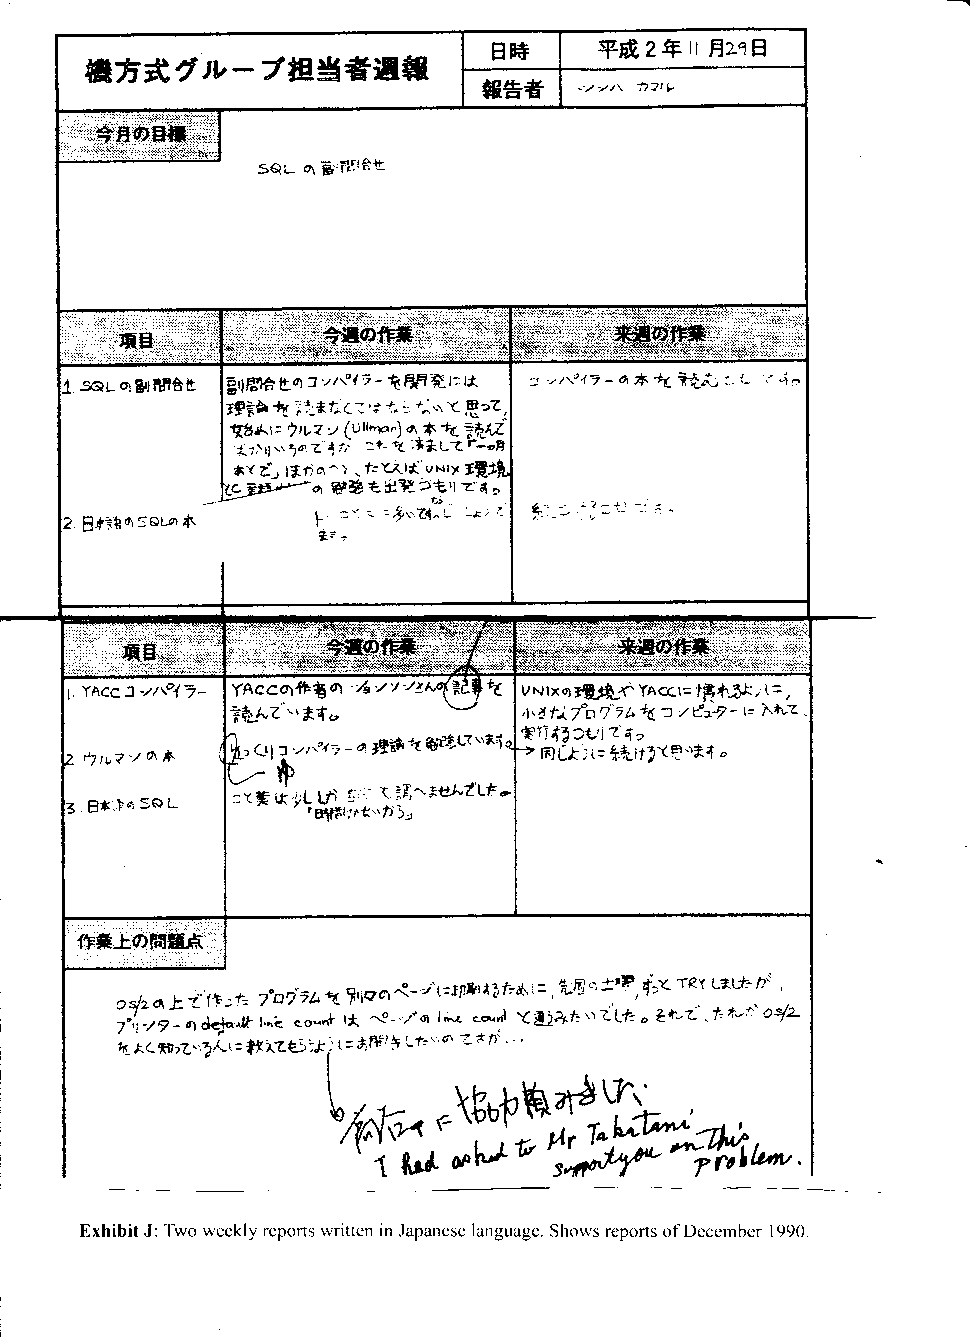 機方式グループ担当者週報
日時
平成2年11月29日
報告者
シンハ カマル
今月の目標
SQLの副問合せ
項目
今週の作業
来週の作業
1. SQLの副問合せ
副問合せのコンパイラーを開発には
理論を読まなくてはならないと思って,
始めにウルマン(Ullman)の本を読んで
これを済まして「一ヶ月
あとで」ほかの たとえばUNIX環境
の勉強も出発つもりです。
コンパイラーの本を読むつもりです。
2. 日本語のSQLの本
ます。
項目
今週の作業
来週の作業
1. YACCコンパイラー
YACCの作者のジョンソンさんの記事を
読んでいます。
UNIXの環境やYACCに慣れるように,
小さなプログラムをコンピューターに入れて,
実行するつもりです。
2 ウルマンの本
ゆっくりコンパイラーの理論を勉強しています。
ゆ
→ 同じように続けると思います。
3. 日本語のSQL
言葉は少ししか を調べませんでした。
「時間がないから」
作業上の問題点
OS/2の上で作ったプログラムを別々のページに印刷するために, 先週の土曜, ずっとTRYしましたが,
プリンターのdefault line countはページのline countと違うみたいでした。それで、だれかOS/2
をよく知っている人に教えてもらうようにお聞きしたいのですが...
に協力頼みました.
I had asked to Mr Takatani
support you on This
problem.
Exhibit J: Two weekly reports written in Japanese language. Shows reports of December 1990.